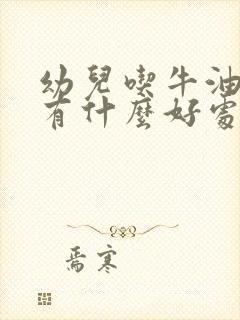 幼兒喫牛油
有什麼好處
焉寒